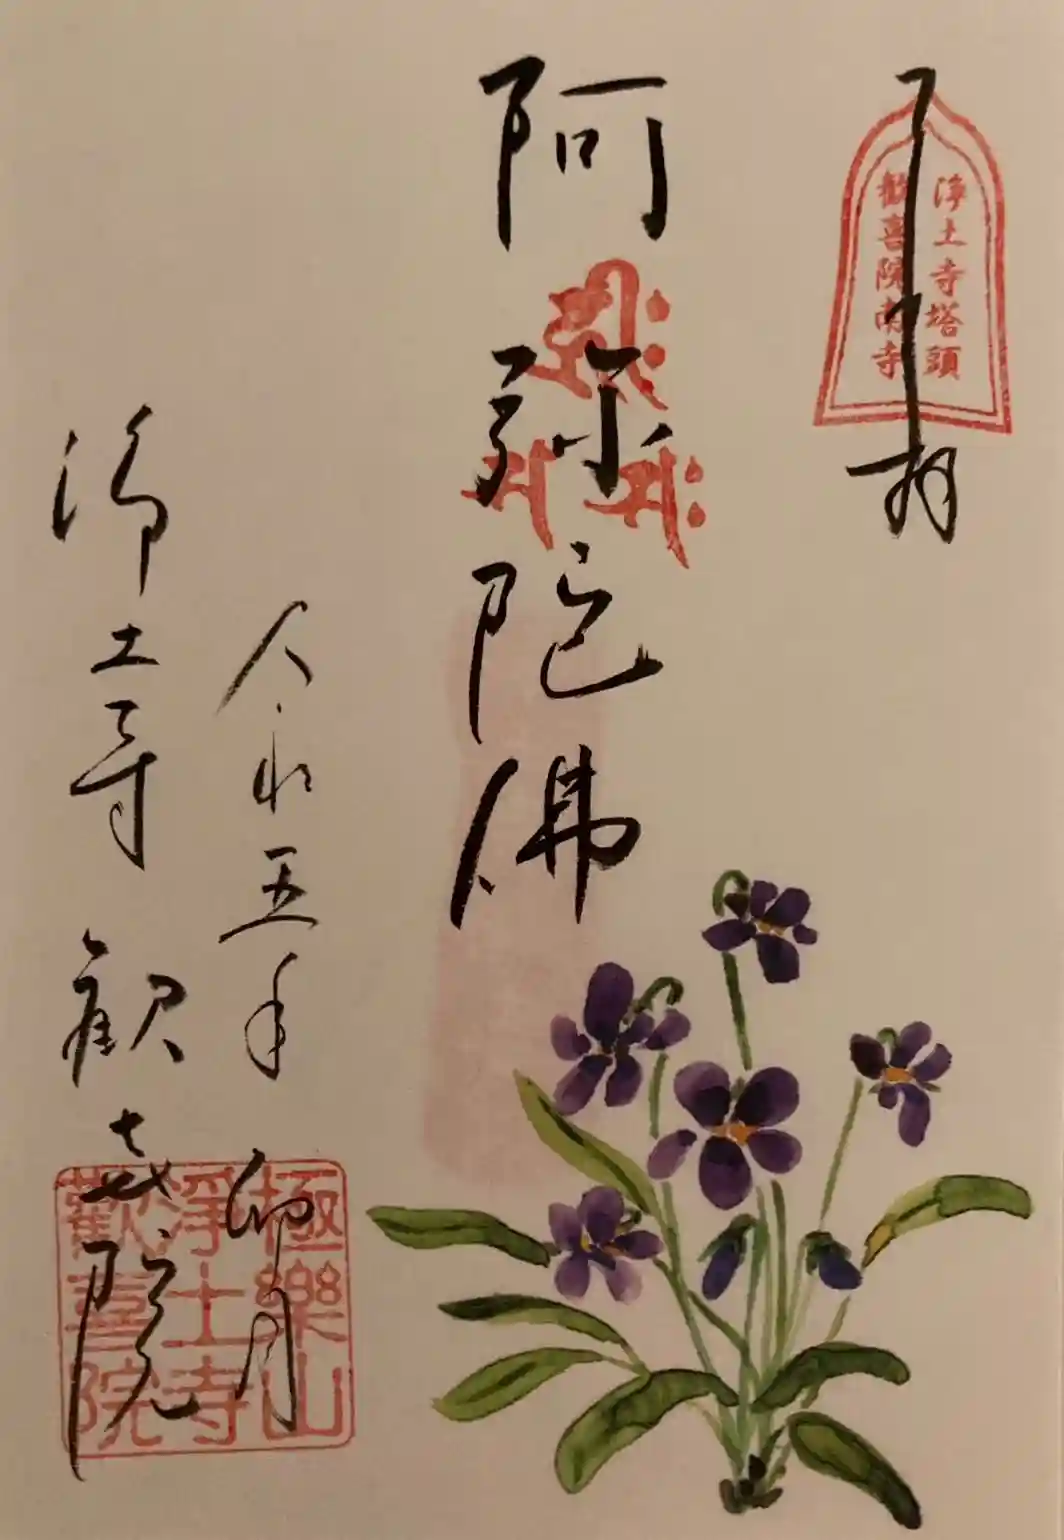 浄土寺塔頭
歓喜院南寺
阿弥陀佛
令和五年 卯月
浄土寺 歓喜院
極樂山
淨土寺
歡喜院